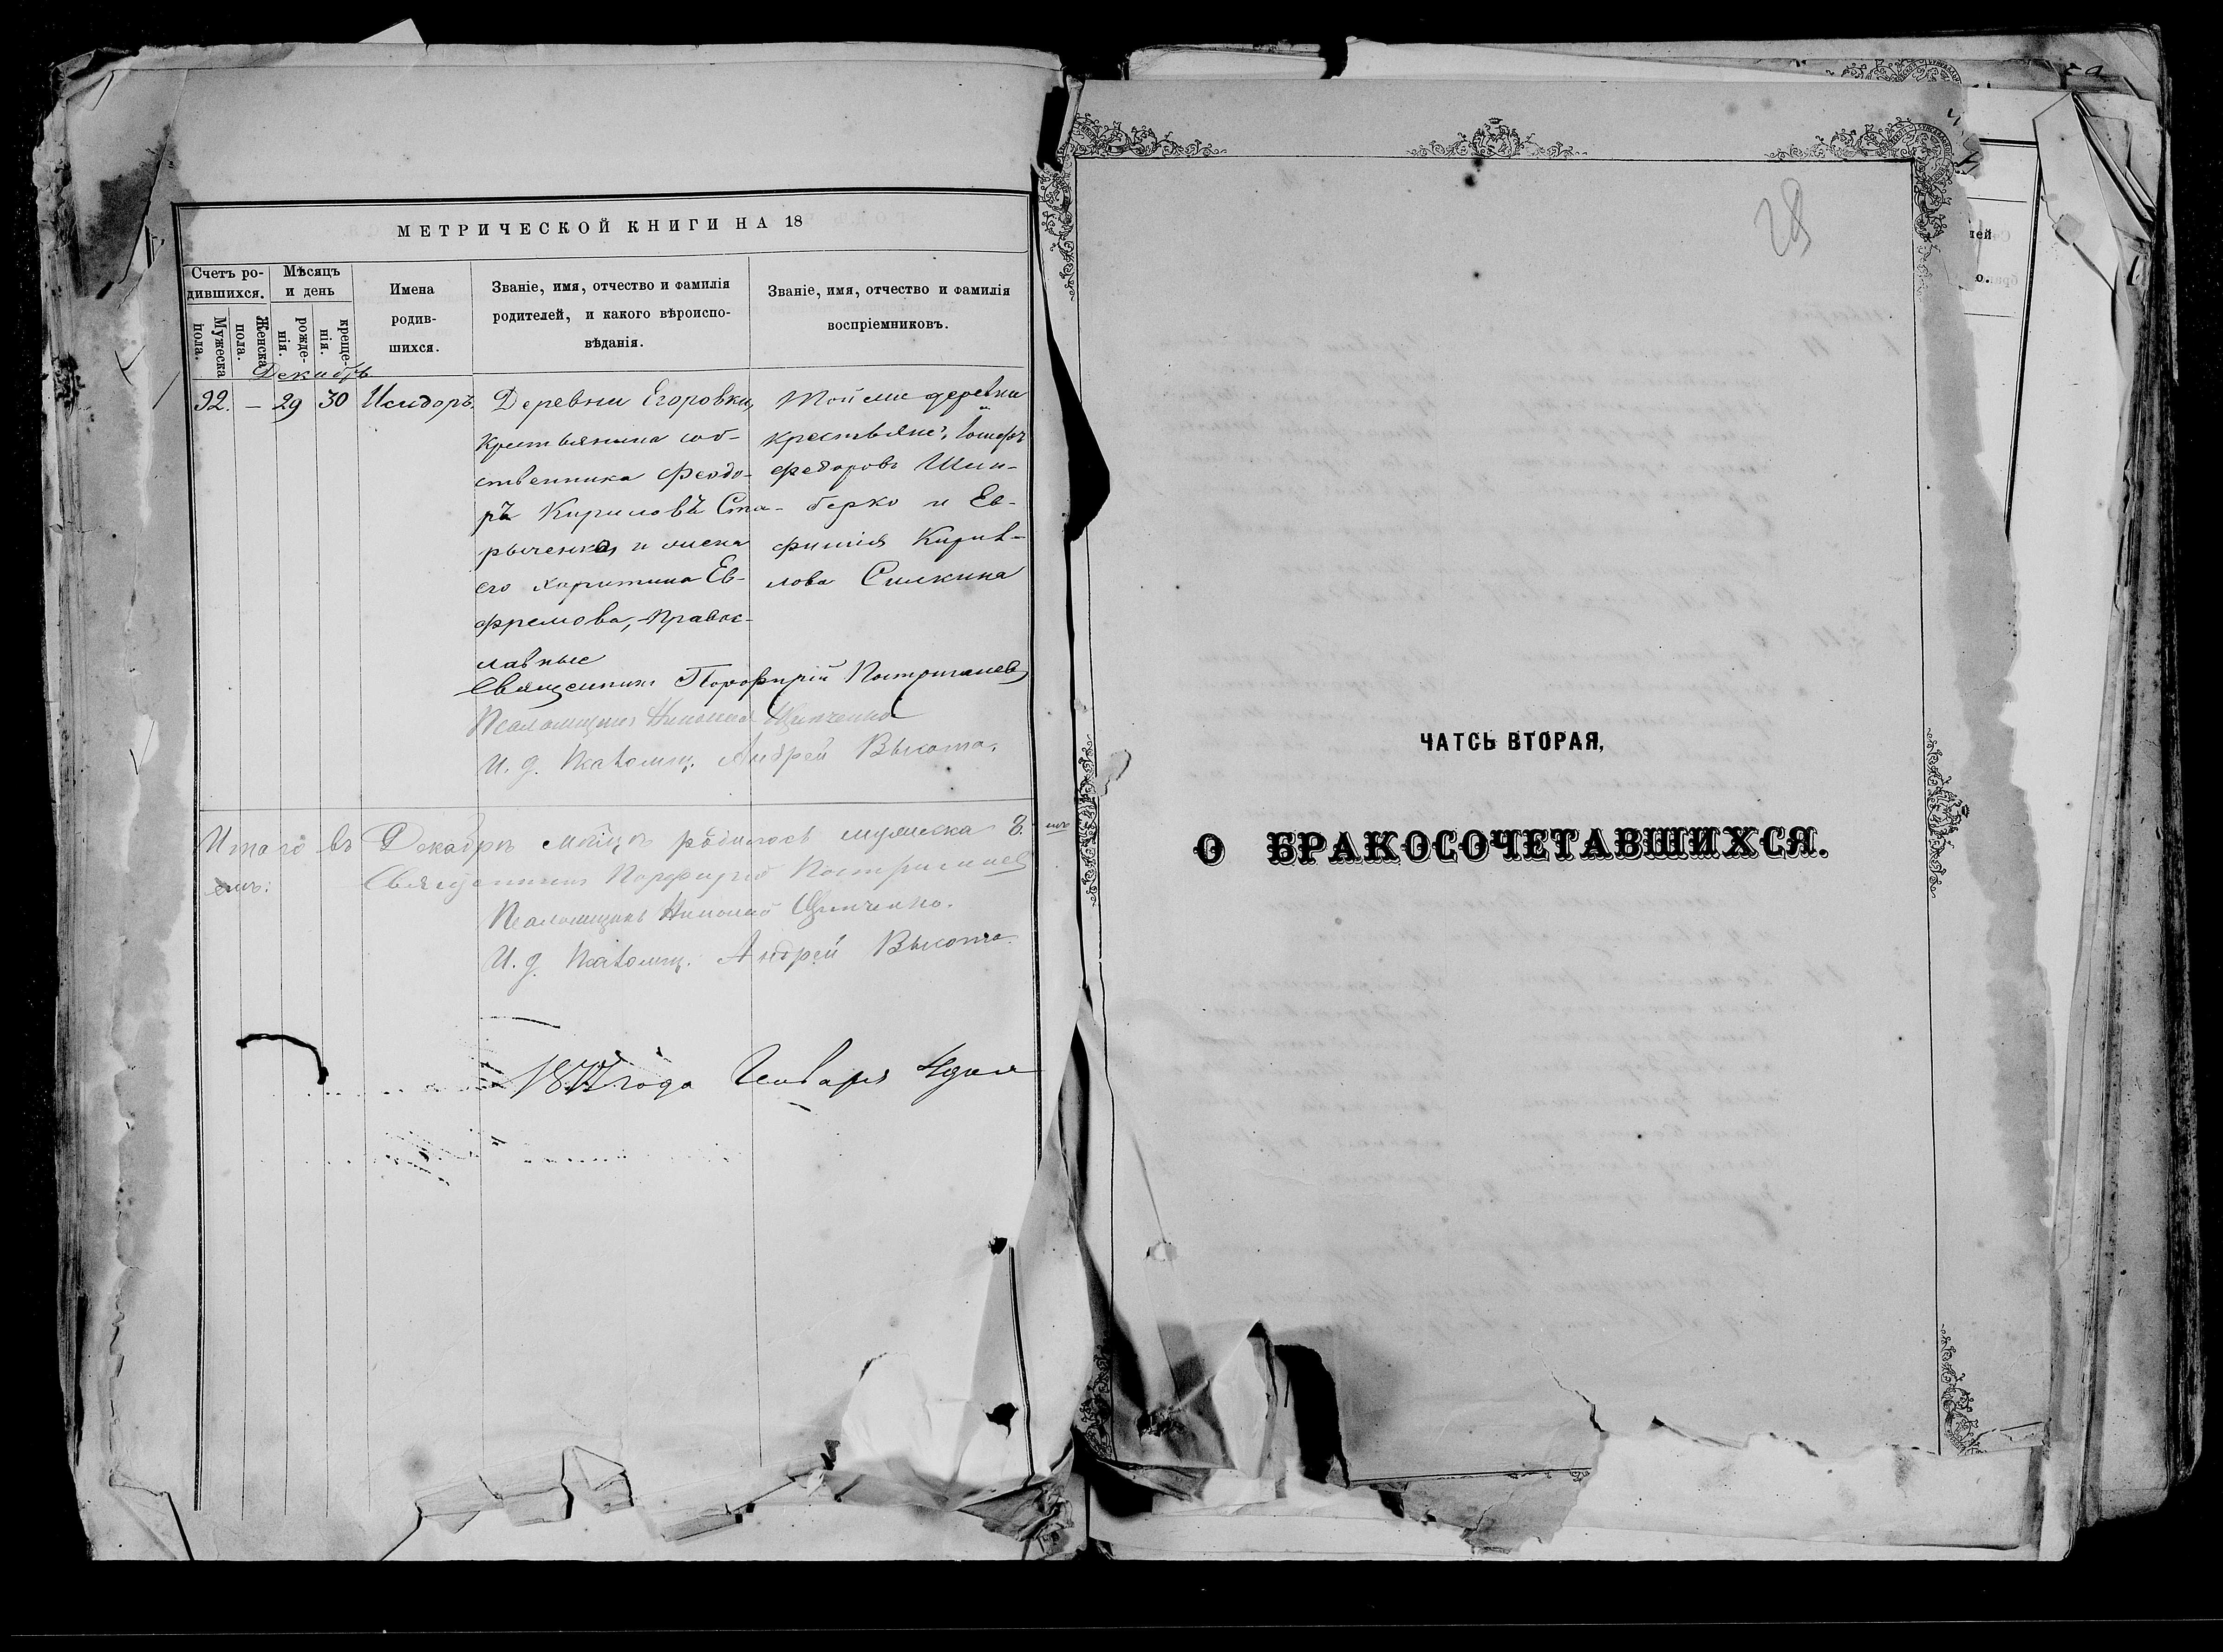 МЕТРИЧЕСКОЙ КНИГИ НА 18
Счетъ ро-
дившихся.
Мужеска
пола.
Женска
пола.
Мѣсяцъ
и день
рожде-
нія.
креще-
нія.
Имена
родив-
шихся.
Званіе, имя, отчество и фамилія
родителей, и какого вѣроиспо-
вѣданія.
Званіе, имя, отчество и фамилія
воспріемниковъ.
Декабрь
92. — 29 30 Исидоръ.
Деревни Егоровки,
крестьянина соб-
ственника Феодо-
ръ Кириловъ Ста-
рыченко, и жена
его Харитина Ев-
фремова, правос-
лавные
Той же деревни
крестьяне, Іосифъ
Федоровъ Шин-
берко и Ев-
фимія Кирил-
лова Силкина
Священникъ Порфирій
Псаломщикъ Николай
И. д. Псаломщ. Андрей Высота.
Итого въ Декабрѣ мѣсяцѣ родилось мужеска 8.
Священникъ Порфирій
Псаломщикъ Николай
И. д. Псаломщ. Андрей Высота.
1877 года Января 4 дня
28
ЧАТСЬ ВТОРАЯ,
О БРАКОСОЧЕТАВШИХСЯ.